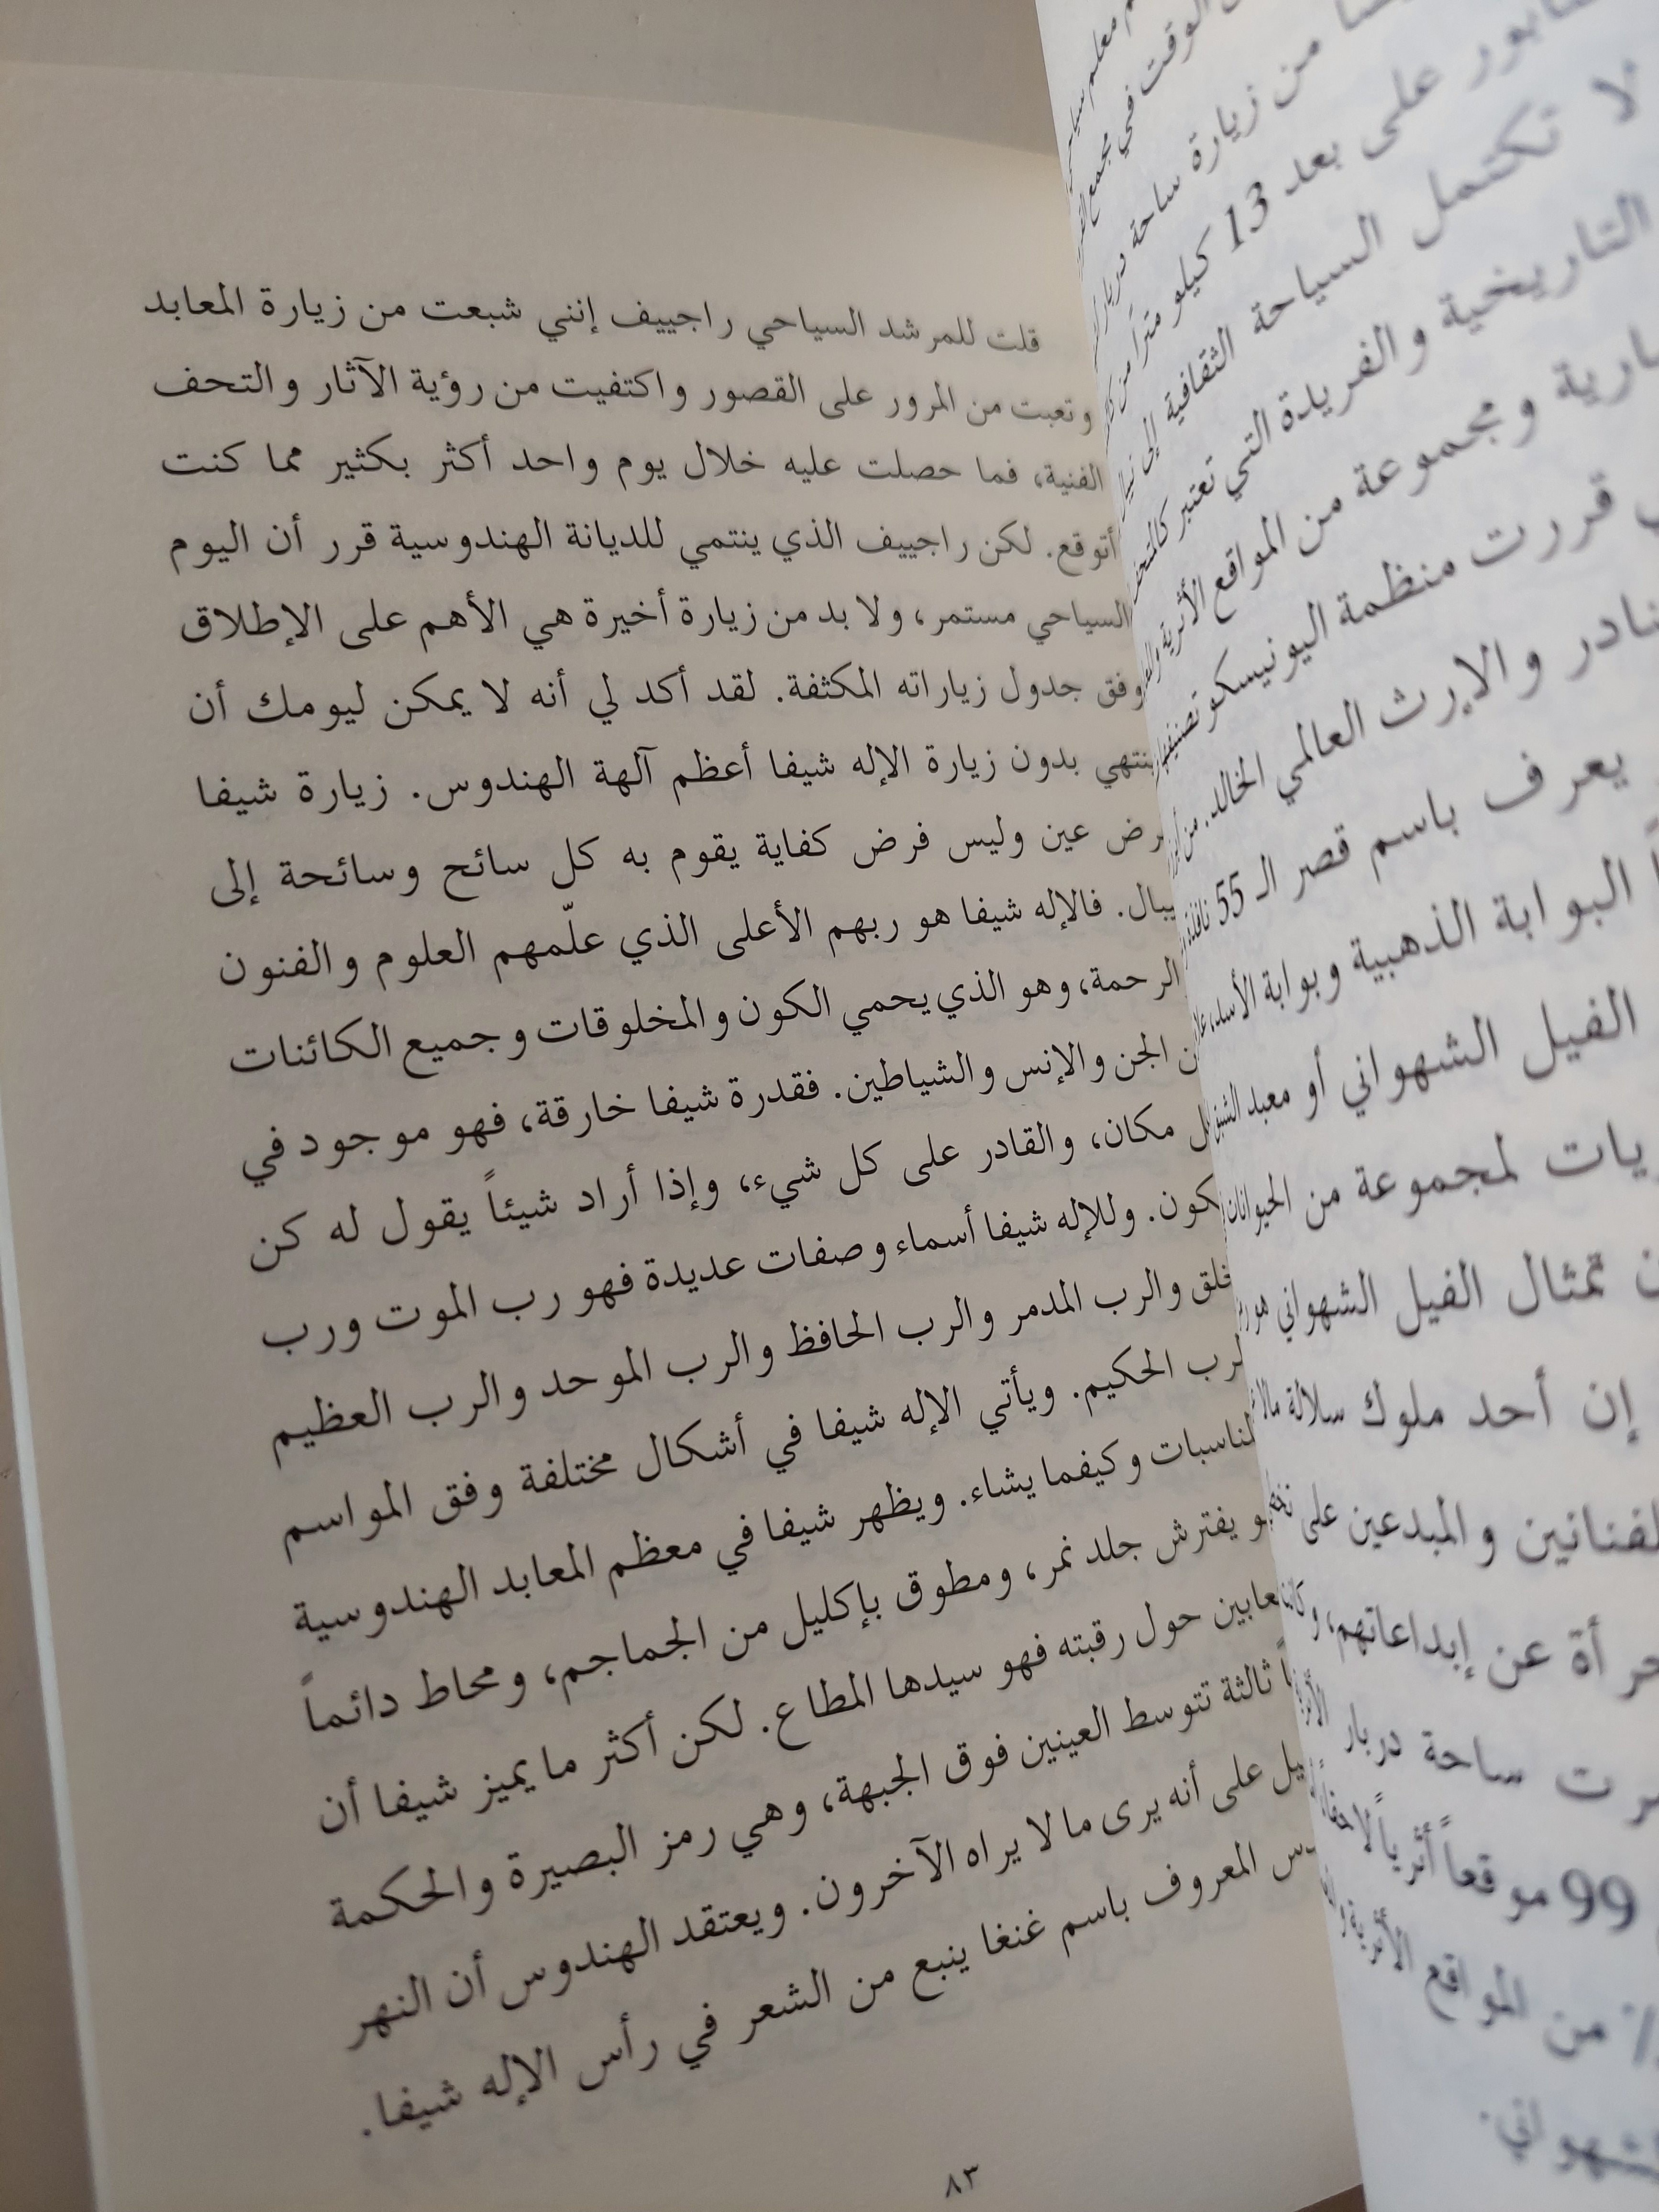 قلت للمرشد السياحي راجييف إنني شبعت من زيارة المعابد
وتعبت من المرور على القصور واكتفيت من رؤية الآثار والتحف
الفنية، فما حصلت عليه خلال يوم واحد أكثر بكثير مما كنت
أتوقع. لكن راجييف الذي ينتمي للديانة الهندوسية قرر أن اليوم
السياحي مستمر، ولا بد من زيارة أخيرة هي الأهم على الإطلاق
وفق جدول زياراته المكثفة. لقد أكد لي أنه لا يمكن ليومك أن
ينتهي بدون زيارة الإله شيفا أعظم آلهة الهندوس. زيارة شيفا
عين وليس فرض كفاية يقوم به كل سائح وسائحة إلى
فالإله شيفا هو ربهم الأعلى الذي علّمهم العلوم والفنون
الرحمة، وهو الذي يحمي الكون والمخلوقات وجميع الكائنات
الجن والإنس والشياطين. فقدرة شيفا خارقة، فهو موجود في
مكان، والقادر على كل شيء، وإذا أراد شيئاً يقول له كن
وللإله شيفا أسماء وصفات عديدة فهو رب الموت ورب
والرب المدمر والرب الحافظ والرب الموحد والرب العظيم
الحكيم. ويأتي الإله شيفا في أشكال مختلفة وفق المواسم
وكيفما يشاء. ويظهر شيفا في معظم المعابد الهندوسية
يفترش جلد نمر، ومطوق بإكليل من الجماجم، ومحاط دائماً
حول رقبته فهو سيدها المطاع. لكن أكثر ما يميز شيفا أن
ثالثة تتوسط العينين فوق الجبهة، وهي رمز البصيرة والحكمة
على أنه يرى ما لا يراه الآخرون. ويعتقد الهندوس أن النهر
المعروف باسم غنغا ينبع من الشعر في رأس الإله شيفا.
٨٣
معلم
الوقت في مجمع
من زيارة ساحة
على بعد 13 كيلو متراً من
لا تكتمل السياحة الثقافية إلى
التاريخية والفريدة التي تعتبر
ومجموعة من المواقع الأثرية
قررت منظمة اليونيسكو
والإرث العالمي الخالد. من
يعرف باسم قصر الـ 55 نافذة
البوابة الذهبية وبوابة الأسد،
الفيل الشهواني أو معبد
لمجموعة من الحيوانات
تمثال الفيل الشهواني هو
إن أحد ملوك سلالة مالا
والمبدعين على
عن إبداعاتهم،
ساحة دربار
99 موقعاً أثرياً
من المواقع الأثرية